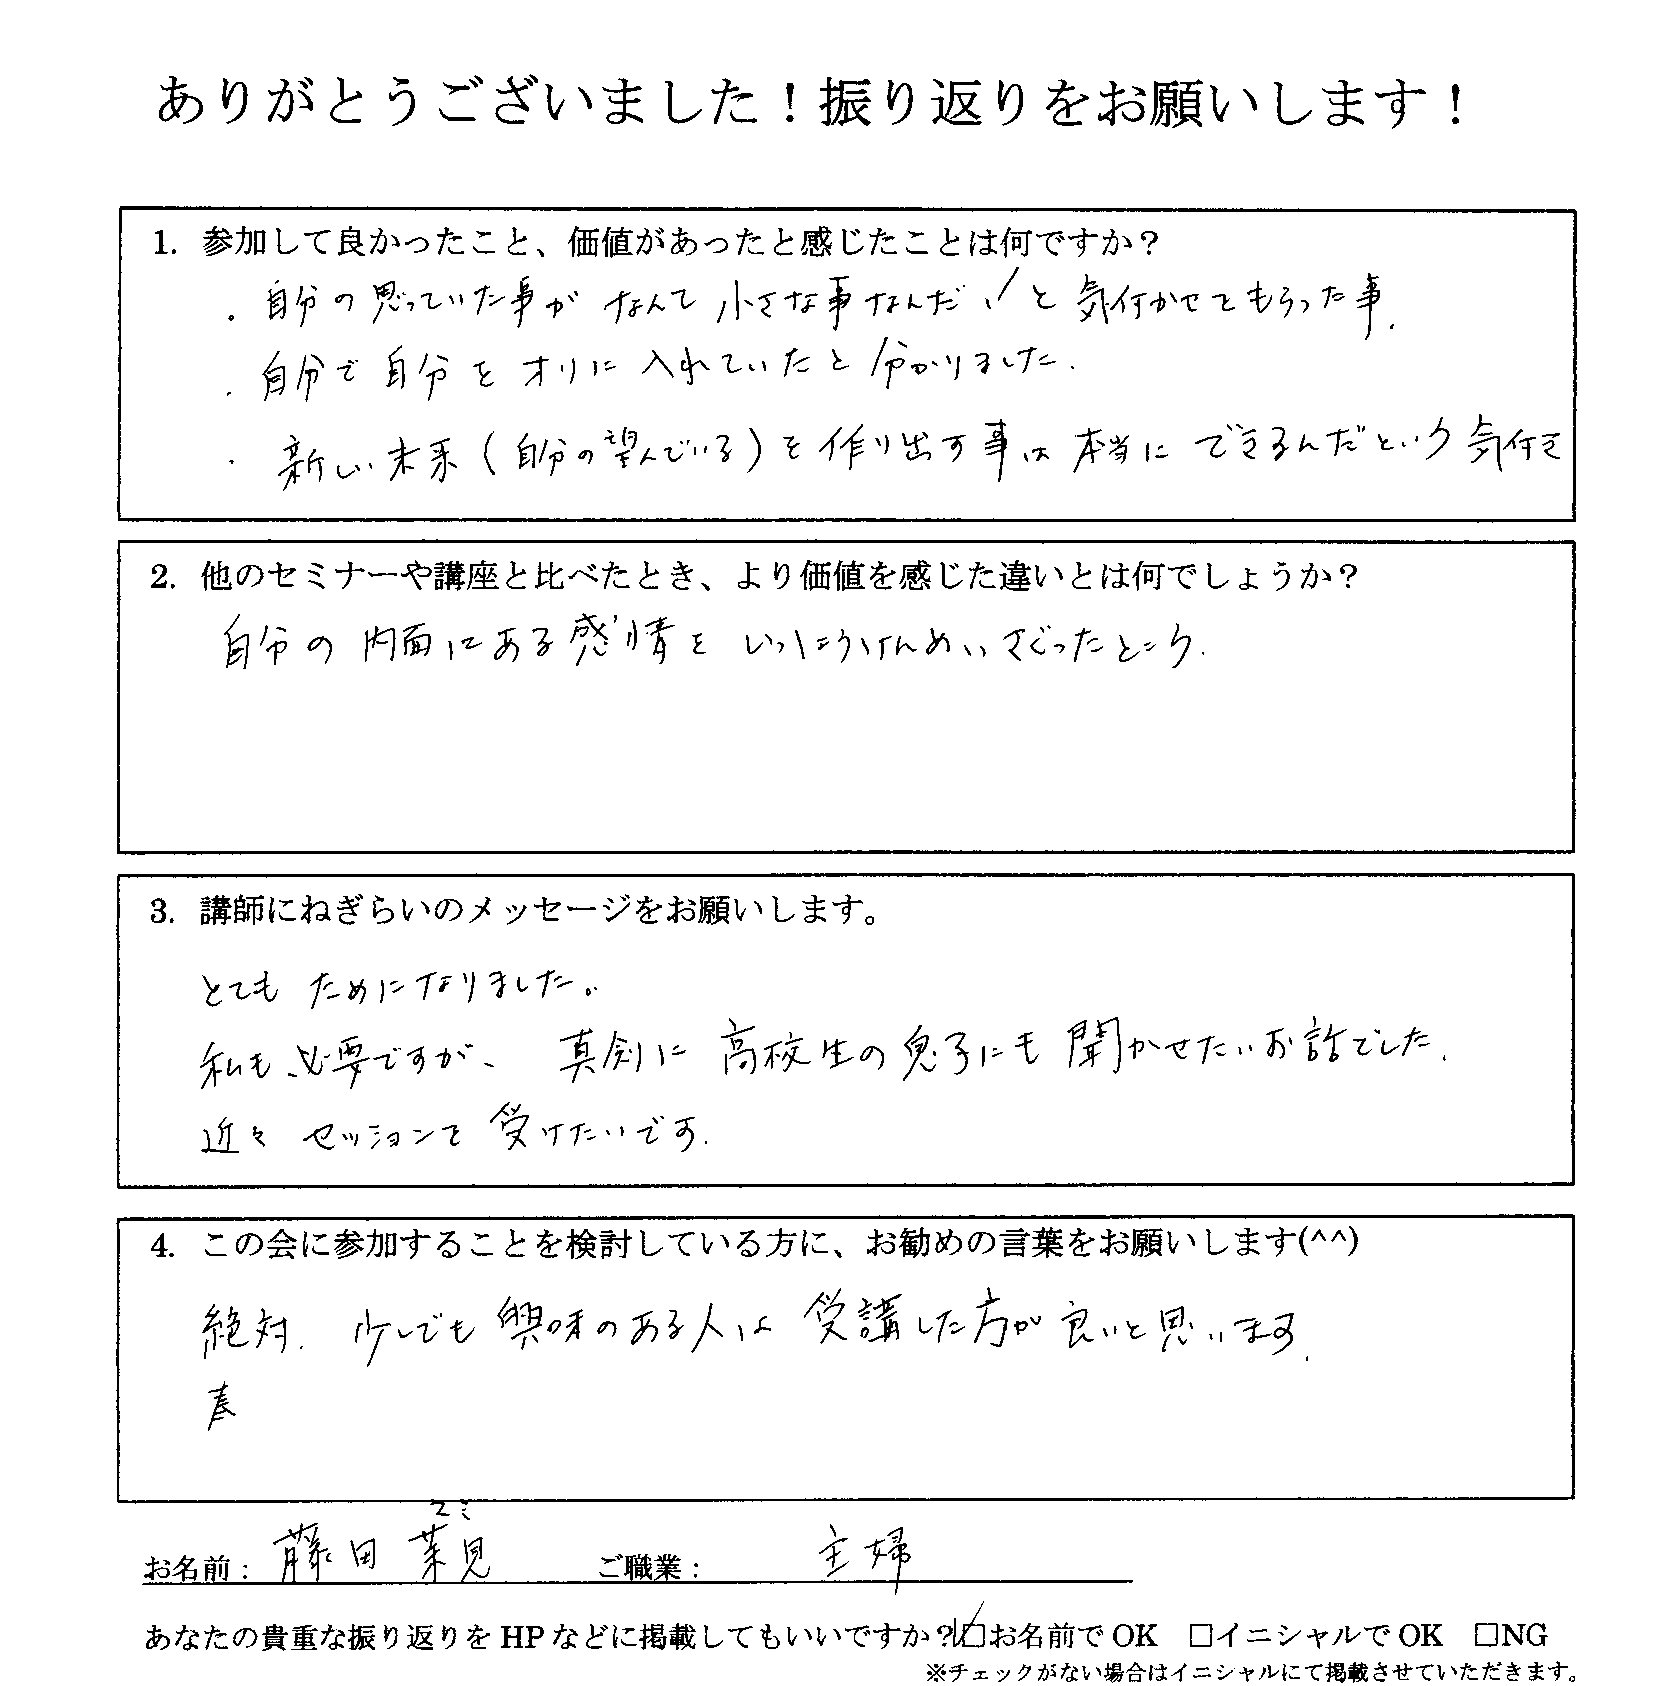 ありがとうございました！振り返りをお願いします！
1. 参加して良かったこと、価値があったと感じたことは何ですか？
・自分の思っていた事が なんて 小さな事なんだ！と 気付かせてもらった事.
・自分で自分をオリに入れていたと分かりました.
・新しい未来(自分の望んでいる)を作り出す事は本当にできるんだという気付き
2. 他のセミナーや講座と比べたとき、より価値を感じた違いとは何でしょうか？
自分の内面にある感情をいっしょうけんめいさぐったところ.
3. 講師にねぎらいのメッセージをお願いします。
とても ためになりました。
私も必要ですが、真剣に高校生の息子にも聞かせたいお話でした.
近々 セッションを受けたいです.
4. この会に参加することを検討している方に、お勧めの言葉をお願いします(^^)
絶対. 少しでも興味のある人は 受講した方が良いと思います.
エミ
お名前： 藤田 見 ご職業： 主婦
あなたの貴重な振り返りを HP などに掲載してもいいですか？☑お名前で OK □イニシャルで OK □NG
※チェックがない場合はイニシャルにて掲載させていただきます。